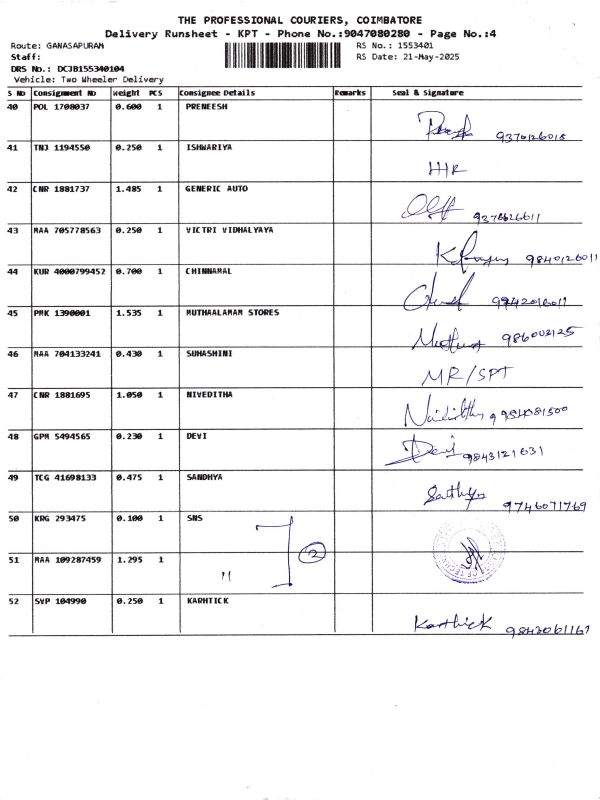 THE PROFESSIONAL COURIERS, COIMBATORE
Delivery Runsheet - KPT - Phone No.:9047080280 - Page No.:4
Route: GANASAPURAM
RS No.: 1553401
Staff:
RS Date: 21-May-2025
DRS No.: DCJB155340104
Vehicle: Two Wheeler Delivery
S No Consignment No Weight PCS Consignee Details Remarks Seal & Signature
40 POL 1708037 0.600 1 PRENEESH
9370126018
41 TNJ 1194550 0.250 1 ISHWARIYA
HIR
42 CNR 1881737 1.485 1 GENERIC AUTO
9376626611
43 MAA 705778563 0.250 1 VICTRI VIDHALYAYA
9840126011
44 KUR 4000799452 0.700 1 CHINNAMAL
9942016011
45 PMK 1390001 1.535 1 MUTHAALAMAN STORES
986002125
46 MAA 704133241 0.430 1 SUHASHINI
MR/SPT
47 CNR 1881695 1.050 1 NIVEDITHA
9984081500
48 GPM 5494565 0.230 1 DEVI
Devi 9843121631
49 TCG 41698133 0.475 1 SANDHYA
9746071769
50 KRG 293475 0.100 1 SNS
2
51 MAA 109287459 1.295 1 "
52 SVP 104990 0.250 1 KARHTICK
Karthick 9843061167